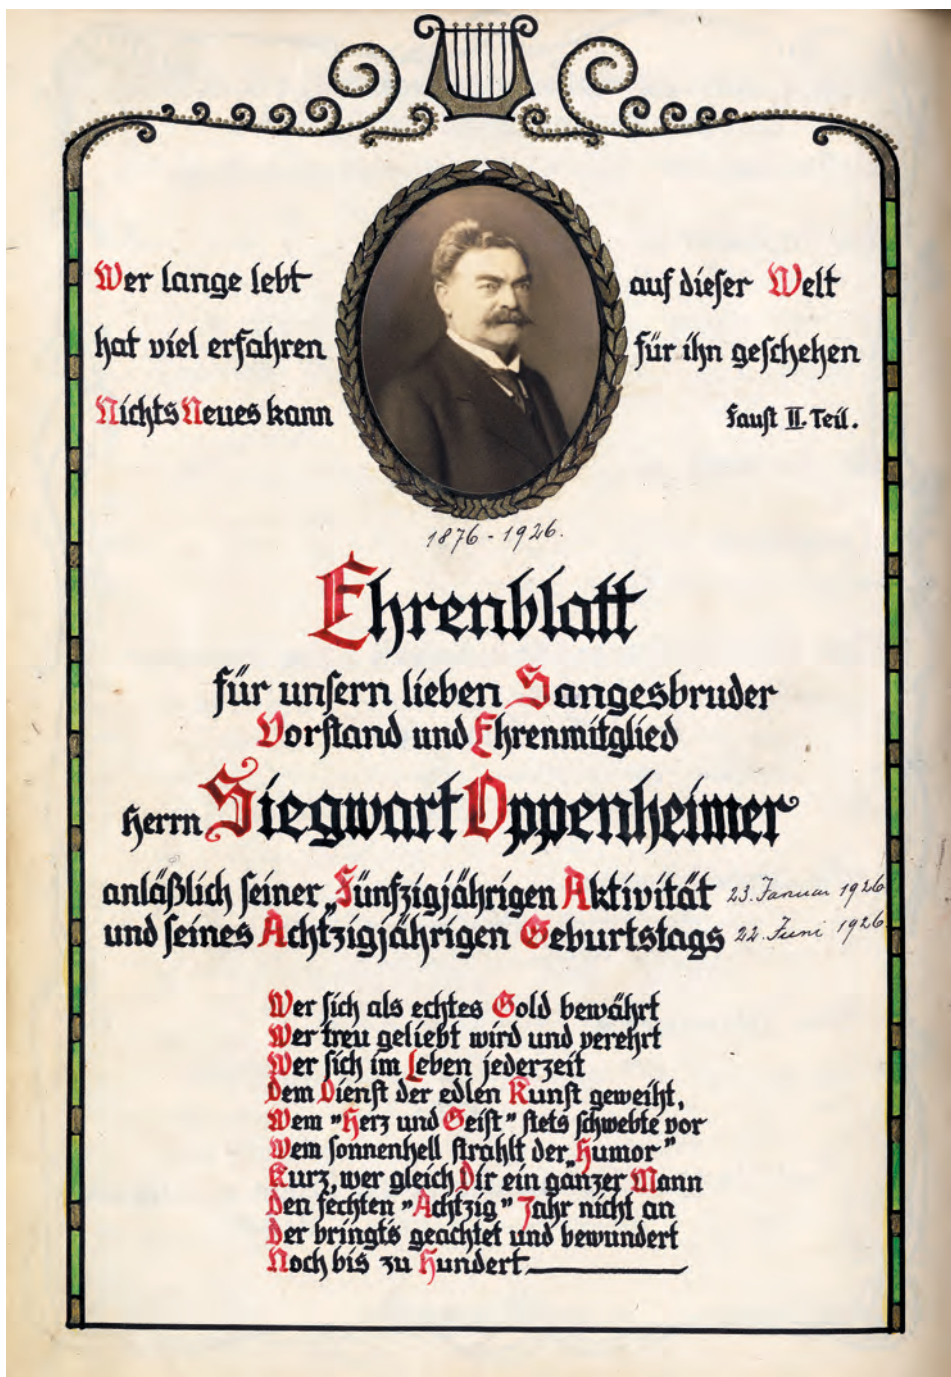 Wer lange lebt auf dieser Welt
hat viel erfahren für ihn geschehen
Nichts Neues kann Faust II. Teil.
1876 - 1926.
Ehrenblatt
für unsern lieben Sangesbruder
Vorstand und Ehrenmitglied
Herrn Siegwart Oppenheimer
anläßlich seiner „Fünfzigjährigen Aktivität 23. Januar 1926
und seines Achtzigjährigen Geburtstags 22. Juni 1926
Wer sich als echtes Gold bewährt
Wer treu geliebt wird und verehrt
Wer sich im Leben jederzeit
Dem Dienst der edlen Kunst geweiht,
Wem "Herz und Geist" stets schwebte vor
Wem sonnenhell strahlt der „Humor"
Kurz, wer gleich Dir ein ganzer Mann
Den fechten "Achtzig" Jahr nicht an
Der bringt's geachtet und bewundert
Noch bis zu Hundert